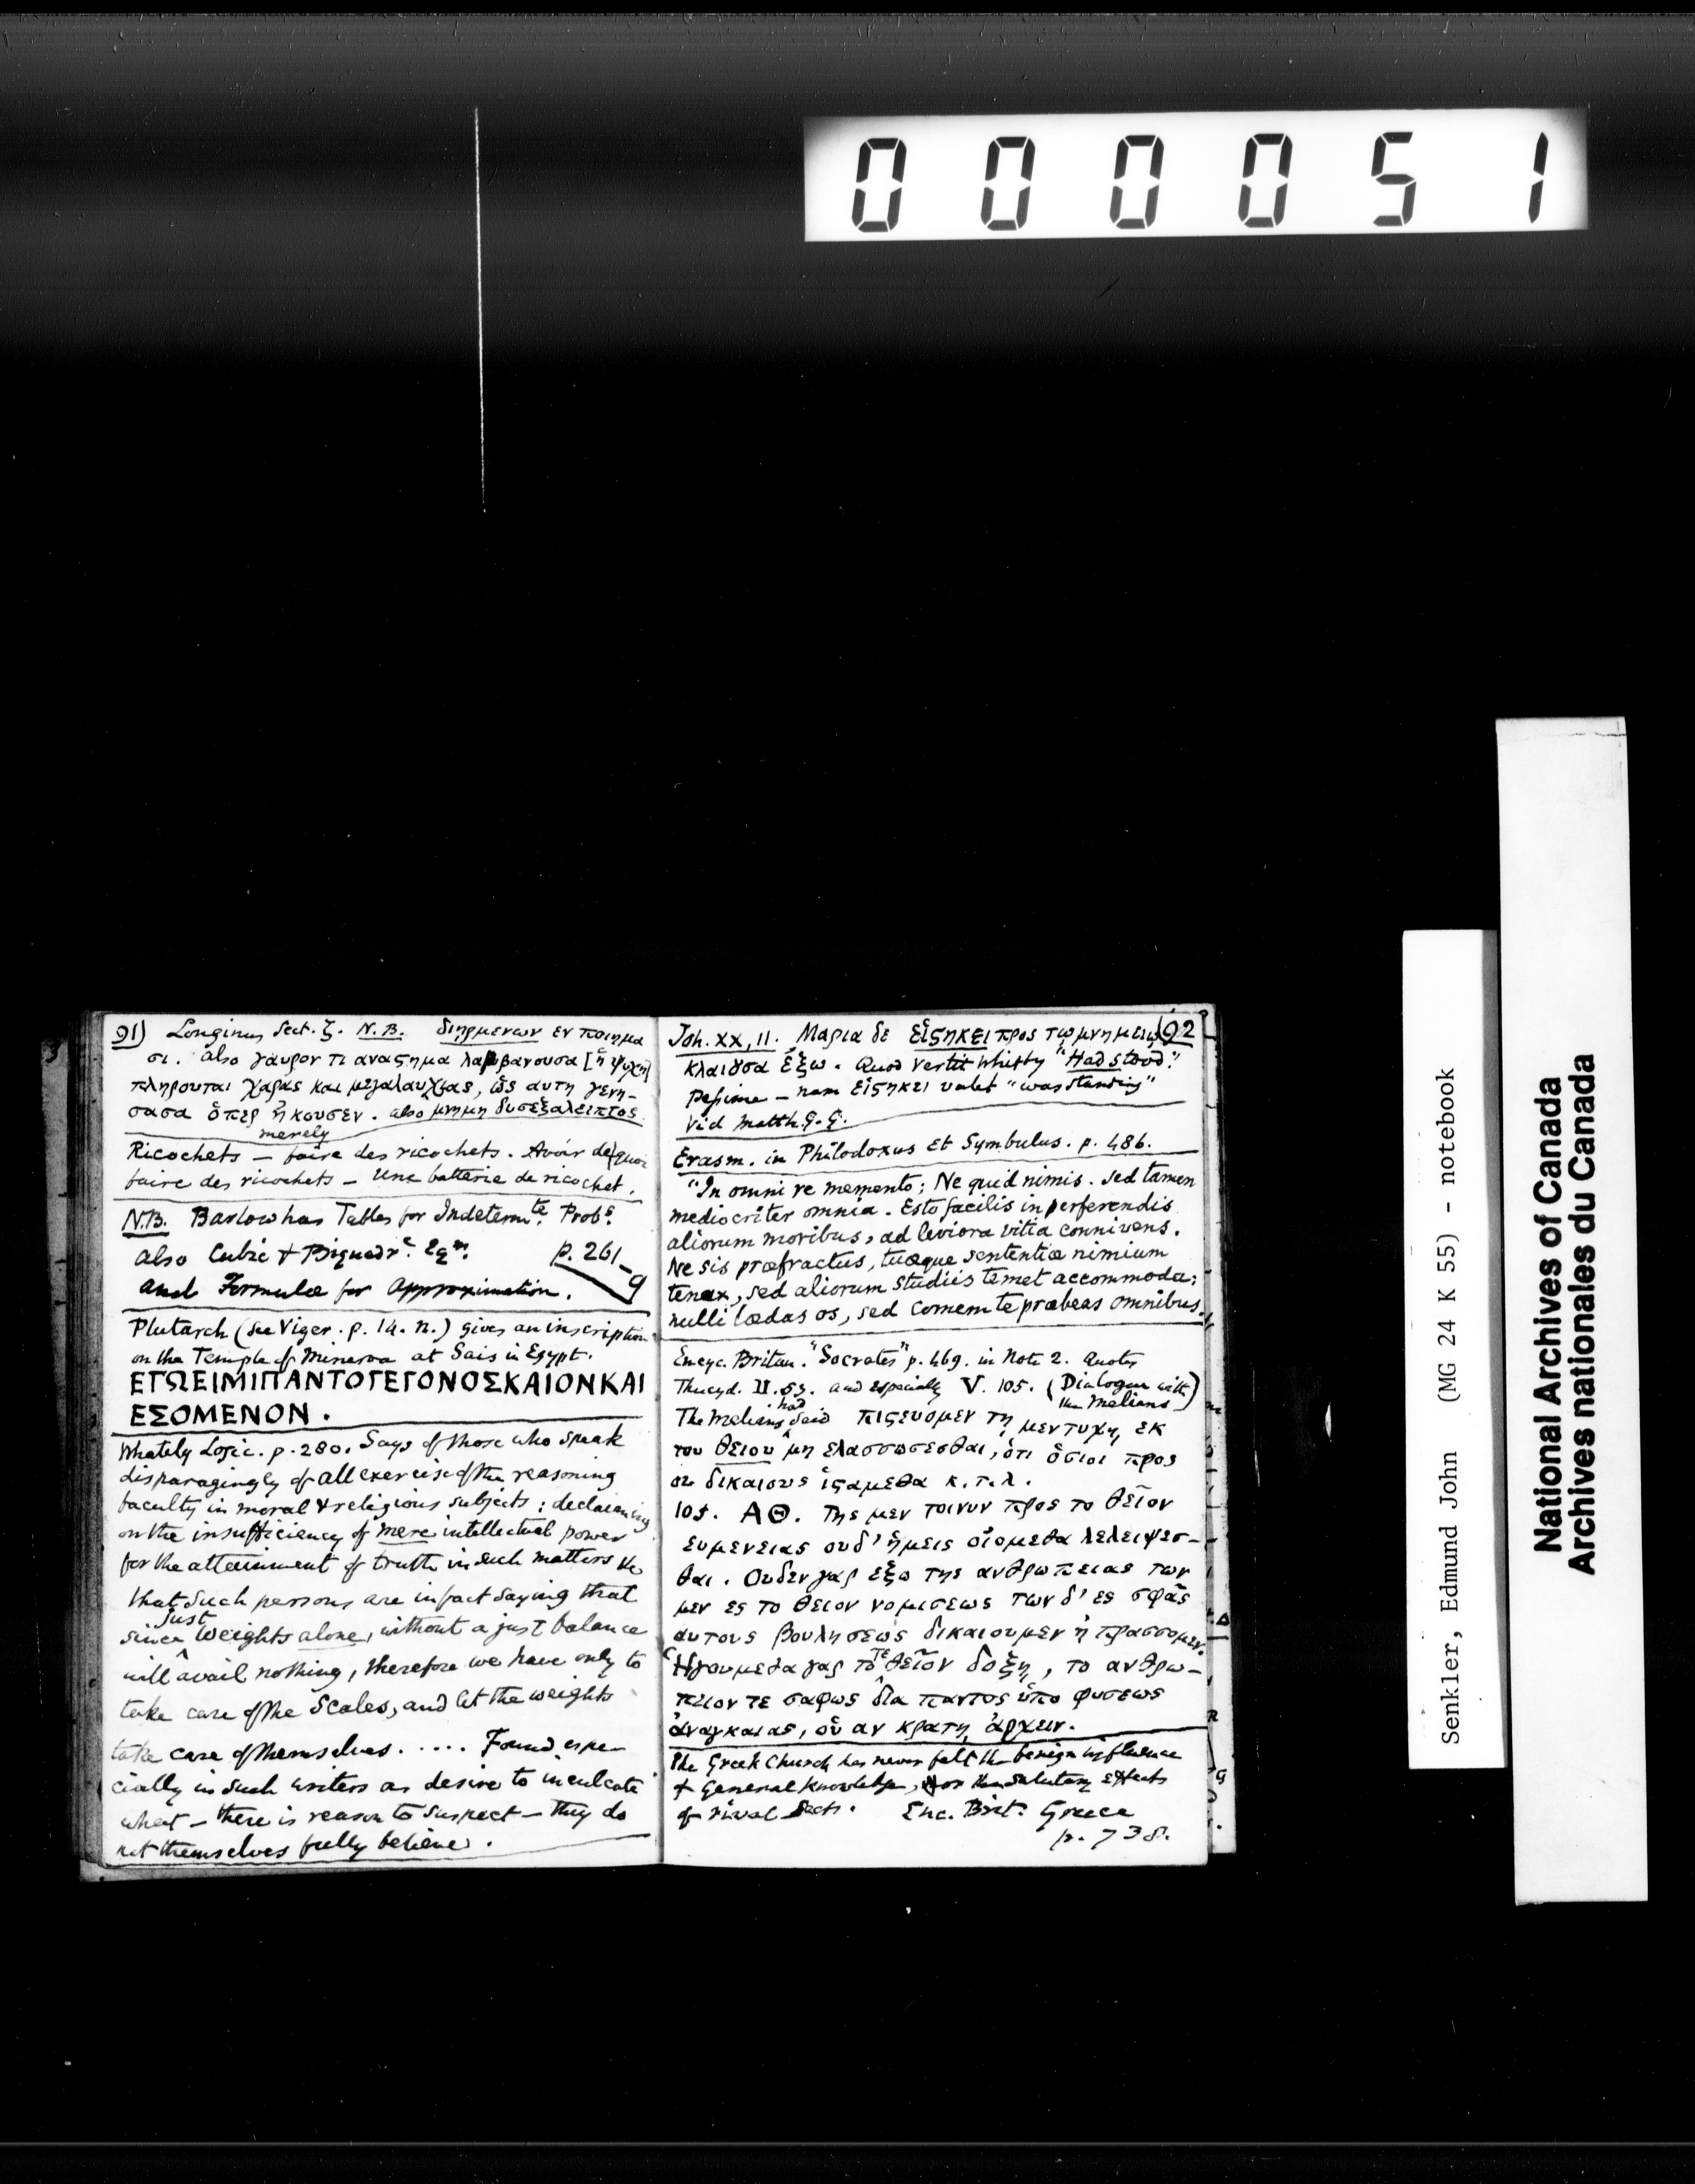 000051
91) Longinus Sect. ζ. N.B. διηρμενων εν ποιημα
σι. also γαυρον τι αναςημα λαμβανουσα [ἡ ψυχη]
πληρουται χαρας και μεγαλαυχιας, ὡς αυτη γενη-
σασα ὅπερ ἤκουσεν. also μνημη δυσεξαλειπτος
merely
Ricochets — faire des ricochets. Avoir de quoi
faire des ricochets — Une batterie de ricochet.
N.B. Barlow has Tables for Indetermte. Probs.
also Cubic & Biquadrc. Eqns.
p. 261-9
and Formulae for Approximation.
Plutarch (see Viger. p. 14. n.) gives an inscription
on the Temple of Minerva at Sais in Egypt.
ΕΓΩΕΙΜΙΠΑΝΤΟΓΕΓΟΝΟΣΚΑΙΟΝΚΑΙ
ΕΣΟΜΕΝΟΝ.
Whately Logic. p. 280. Says of those who speak
disparagingly of all exercise of the reasoning
faculty in moral & religious subjects: declaiming
on the insufficiency of mere intellectual power
for the attainment of truth in such matters &c
that such persons are in fact saying that
since just weights alone, without a just balance
will avail nothing, therefore we have only to
take care of the Scales, and let the weights
take care of themselves. .... Found espe-
cially in such writers as desire to inculcate
what — there is reason to suspect — they do
not themselves fully believe.
92
Joh. XX, 11. Μαρια δε εἱςηκει προς τῳ μνημειῳ
κλαιουσα ἔξω. Quod vertit Whitby "Had stood."
Pessime — nam εἱςηκει valet "was standing"
Vid Matth. G. G.
Erasm. in Philodoxus et Symbulus. p. 486.
"In omni re memento; Ne quid nimis. Sed tamen
mediocriter omnia. Esto facilis in perferendis
aliorum moribus, ad leviora vitia connivens.
Ne sis præfractus, tuæque sententiæ nimium
tenax, sed aliorum studiis temet accommoda;
nulli lædas os, sed comem te præbeas omnibus.
Encyc. Britan. "Socrates" p. 469. in Note 2. Quotes
Thucyd. II. 53. and especially V. 105. (Dialogue with the Melians)
The Melians had said πιςευομεν τῃ μεν τυχῃ εκ
του θειου μη ελασσωσεσθαι, ὁτι ὅσιοι προς
ου δικαιους ἱςαμεθα κ.τ.λ.
105. ΑΘ. Της μεν τοινυν προς το θεῖον
ευμενειας ουδ' ἡμεις οἰομεθα λελειψεσ-
θαι. Ουδεν γαρ εξω της ανθρωπειας των
μεν ες το θειον νομισεως των δ' ες σφᾶς
αυτους βουλησεως δικαιουμεν ἠ πρασσομεν.
Ἡγουμεθα γαρ το τε θεῖον δοξῃ, το ανθρω-
πειον τε σαφως δια παντος ὑπο φυσεως
ἀναγκαιας, οὗ αν κρατῃ, ἀρχειν.
The Greek Church has never felt the benign influence
of general knowledge, nor the salutary effects
of rival sects. Enc. Brit. Greece
p. 738.
Senkler, Edmund John (MG 24 K 55) - notebook
National Archives of Canada
Archives nationales du Canada